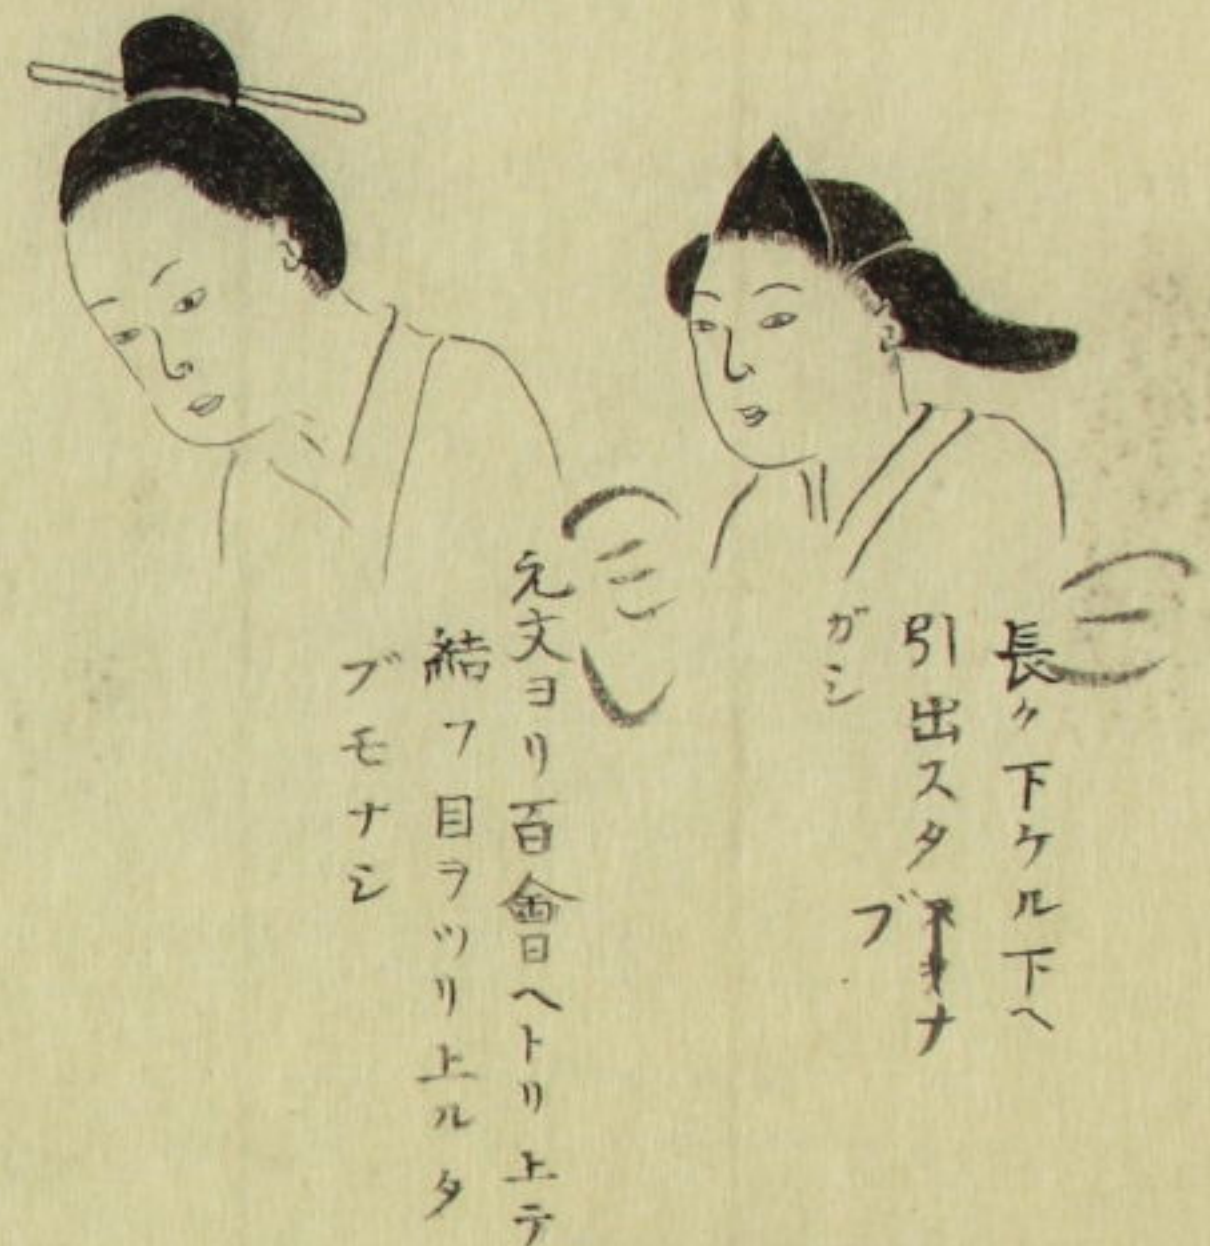 長ク下ケル下ヘ
引出スタブナ
ガシ
(三)
元文ヨリ百會ヘトリ上テ
結フ目ヲツリ上ルタ
ブモナシ